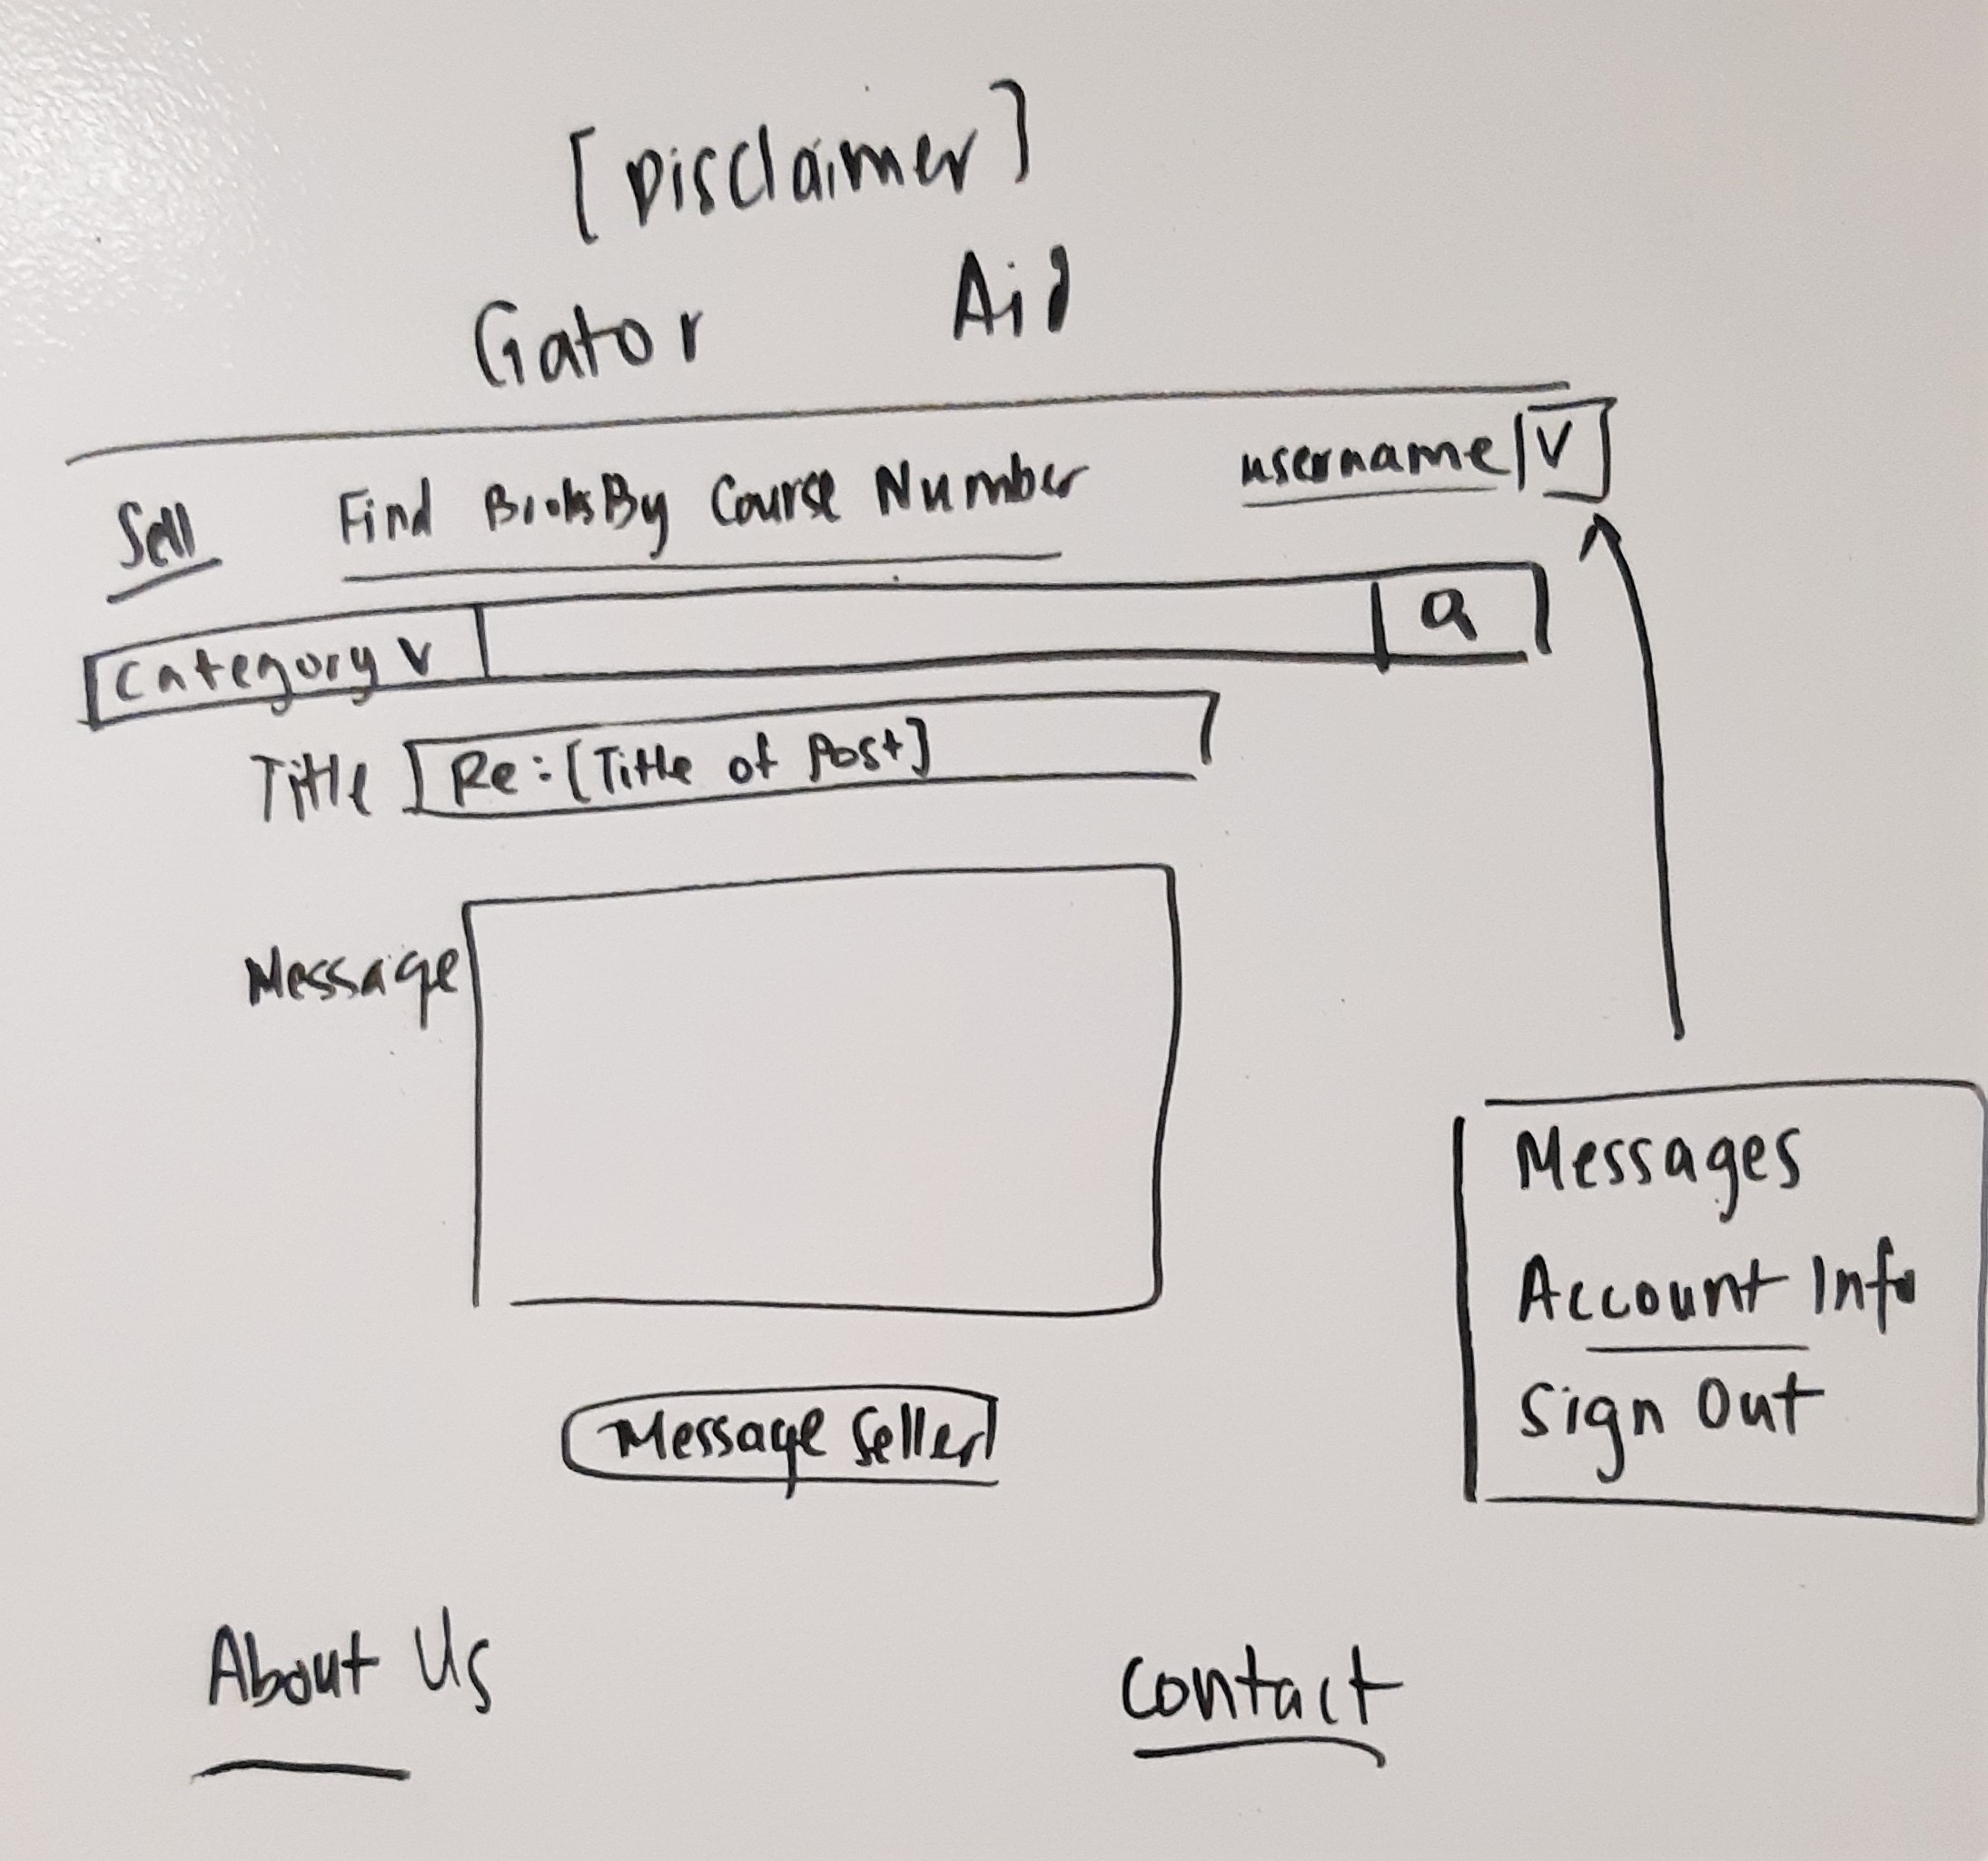 [Disclaimer]
Gator Aid
Sell Find Books By Course Number username V
Category V
Title Re: [Title of Post]
Message
Messages
Account Info
Sign Out
Message Seller
About Us Contact